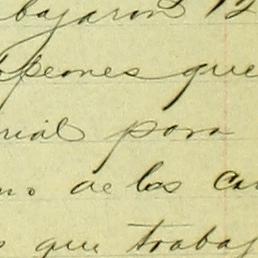 bajaron 12
peones que
rial para
de los ca
que trabaj